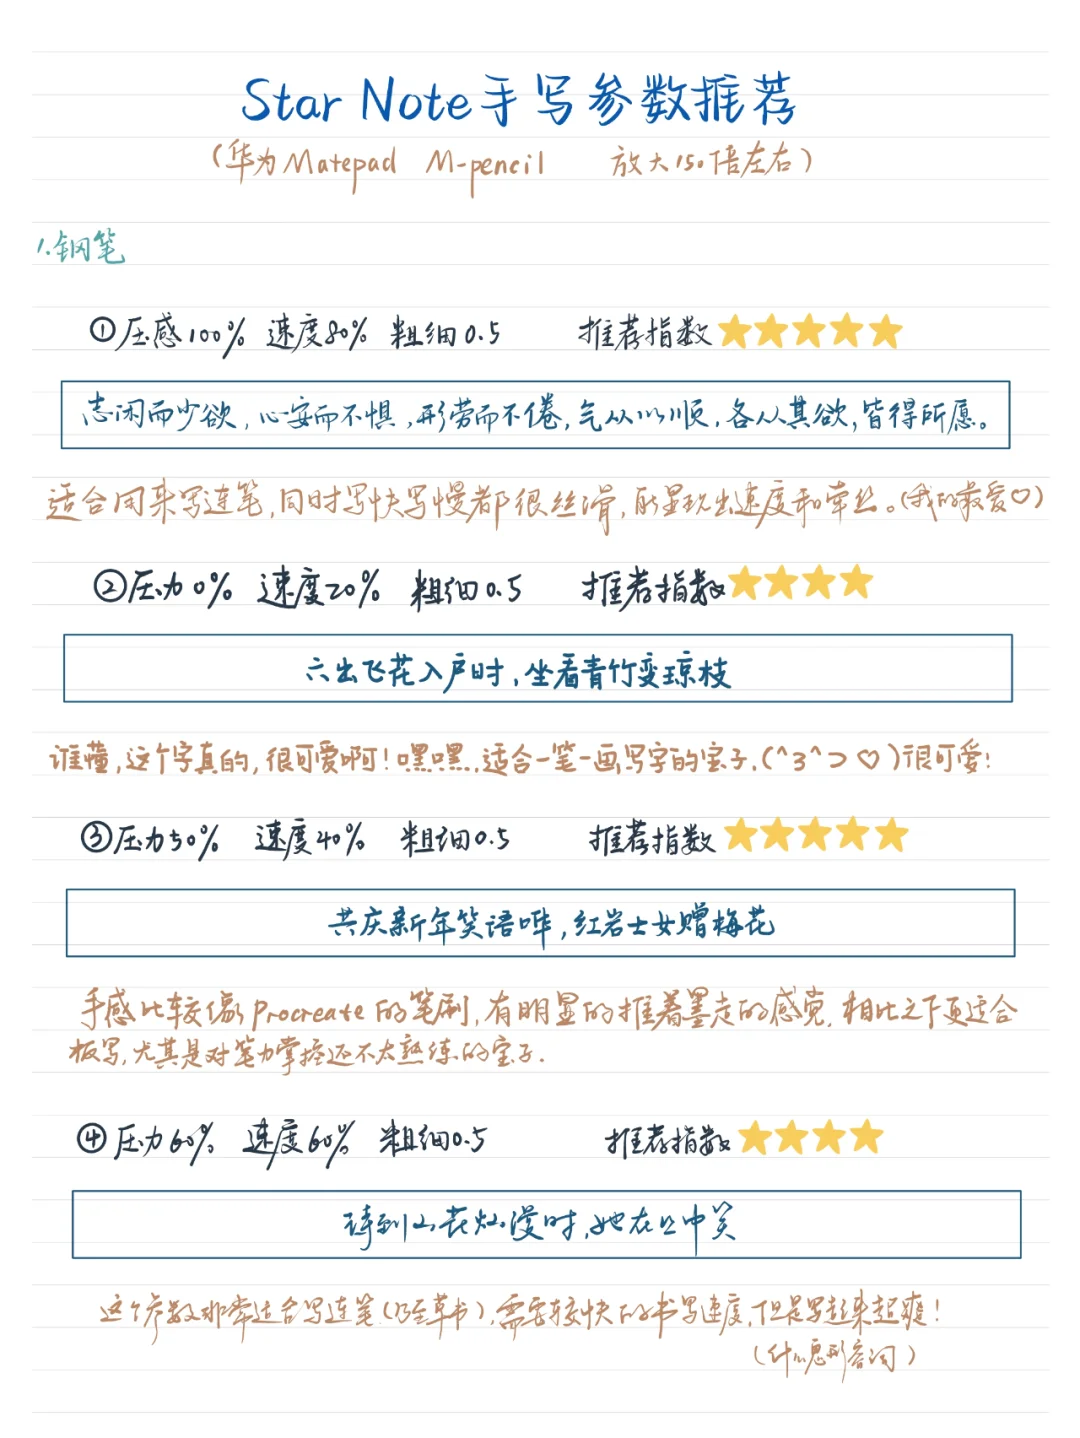 Star Note手写参数推荐
(华为Matepad M-pencil 放大150倍左右)
1.钢笔
①压感100% 速度80% 粗细0.5 推荐指数⭐⭐⭐⭐⭐
志闲而少欲,心安而不惧,形劳而不倦,气从以顺,各从其欲,皆得所愿。
适合用来写连笔,同时写快写慢都很丝滑,能显现出速度和牵丝。(我的最爱♡)
②压力0% 速度20% 粗细0.5 推荐指数⭐⭐⭐⭐
六出飞花入户时,坐看青竹变琼枝
谁懂,这个字真的,很可爱啊!嘿嘿.适合一笔一画写字的宝子.(^3^⊃♡)很可爱!
③压力50% 速度40% 粗细0.5 推荐指数⭐⭐⭐⭐⭐
共庆新年笑语哗,红岩士女赠梅花
手感比较像Procreate的笔刷,有明显的推着墨走的感觉,相比之下更适合
板写,尤其是对笔力掌控还不太熟练的宝子.
④压力60% 速度60% 粗细0.5 推荐指数⭐⭐⭐⭐
待到山花烂漫时,她在丛中笑
这个参数非常适合写连笔(乃至草书),需要较快的书写速度,但是写起来超爽!
(什么鬼形容词)